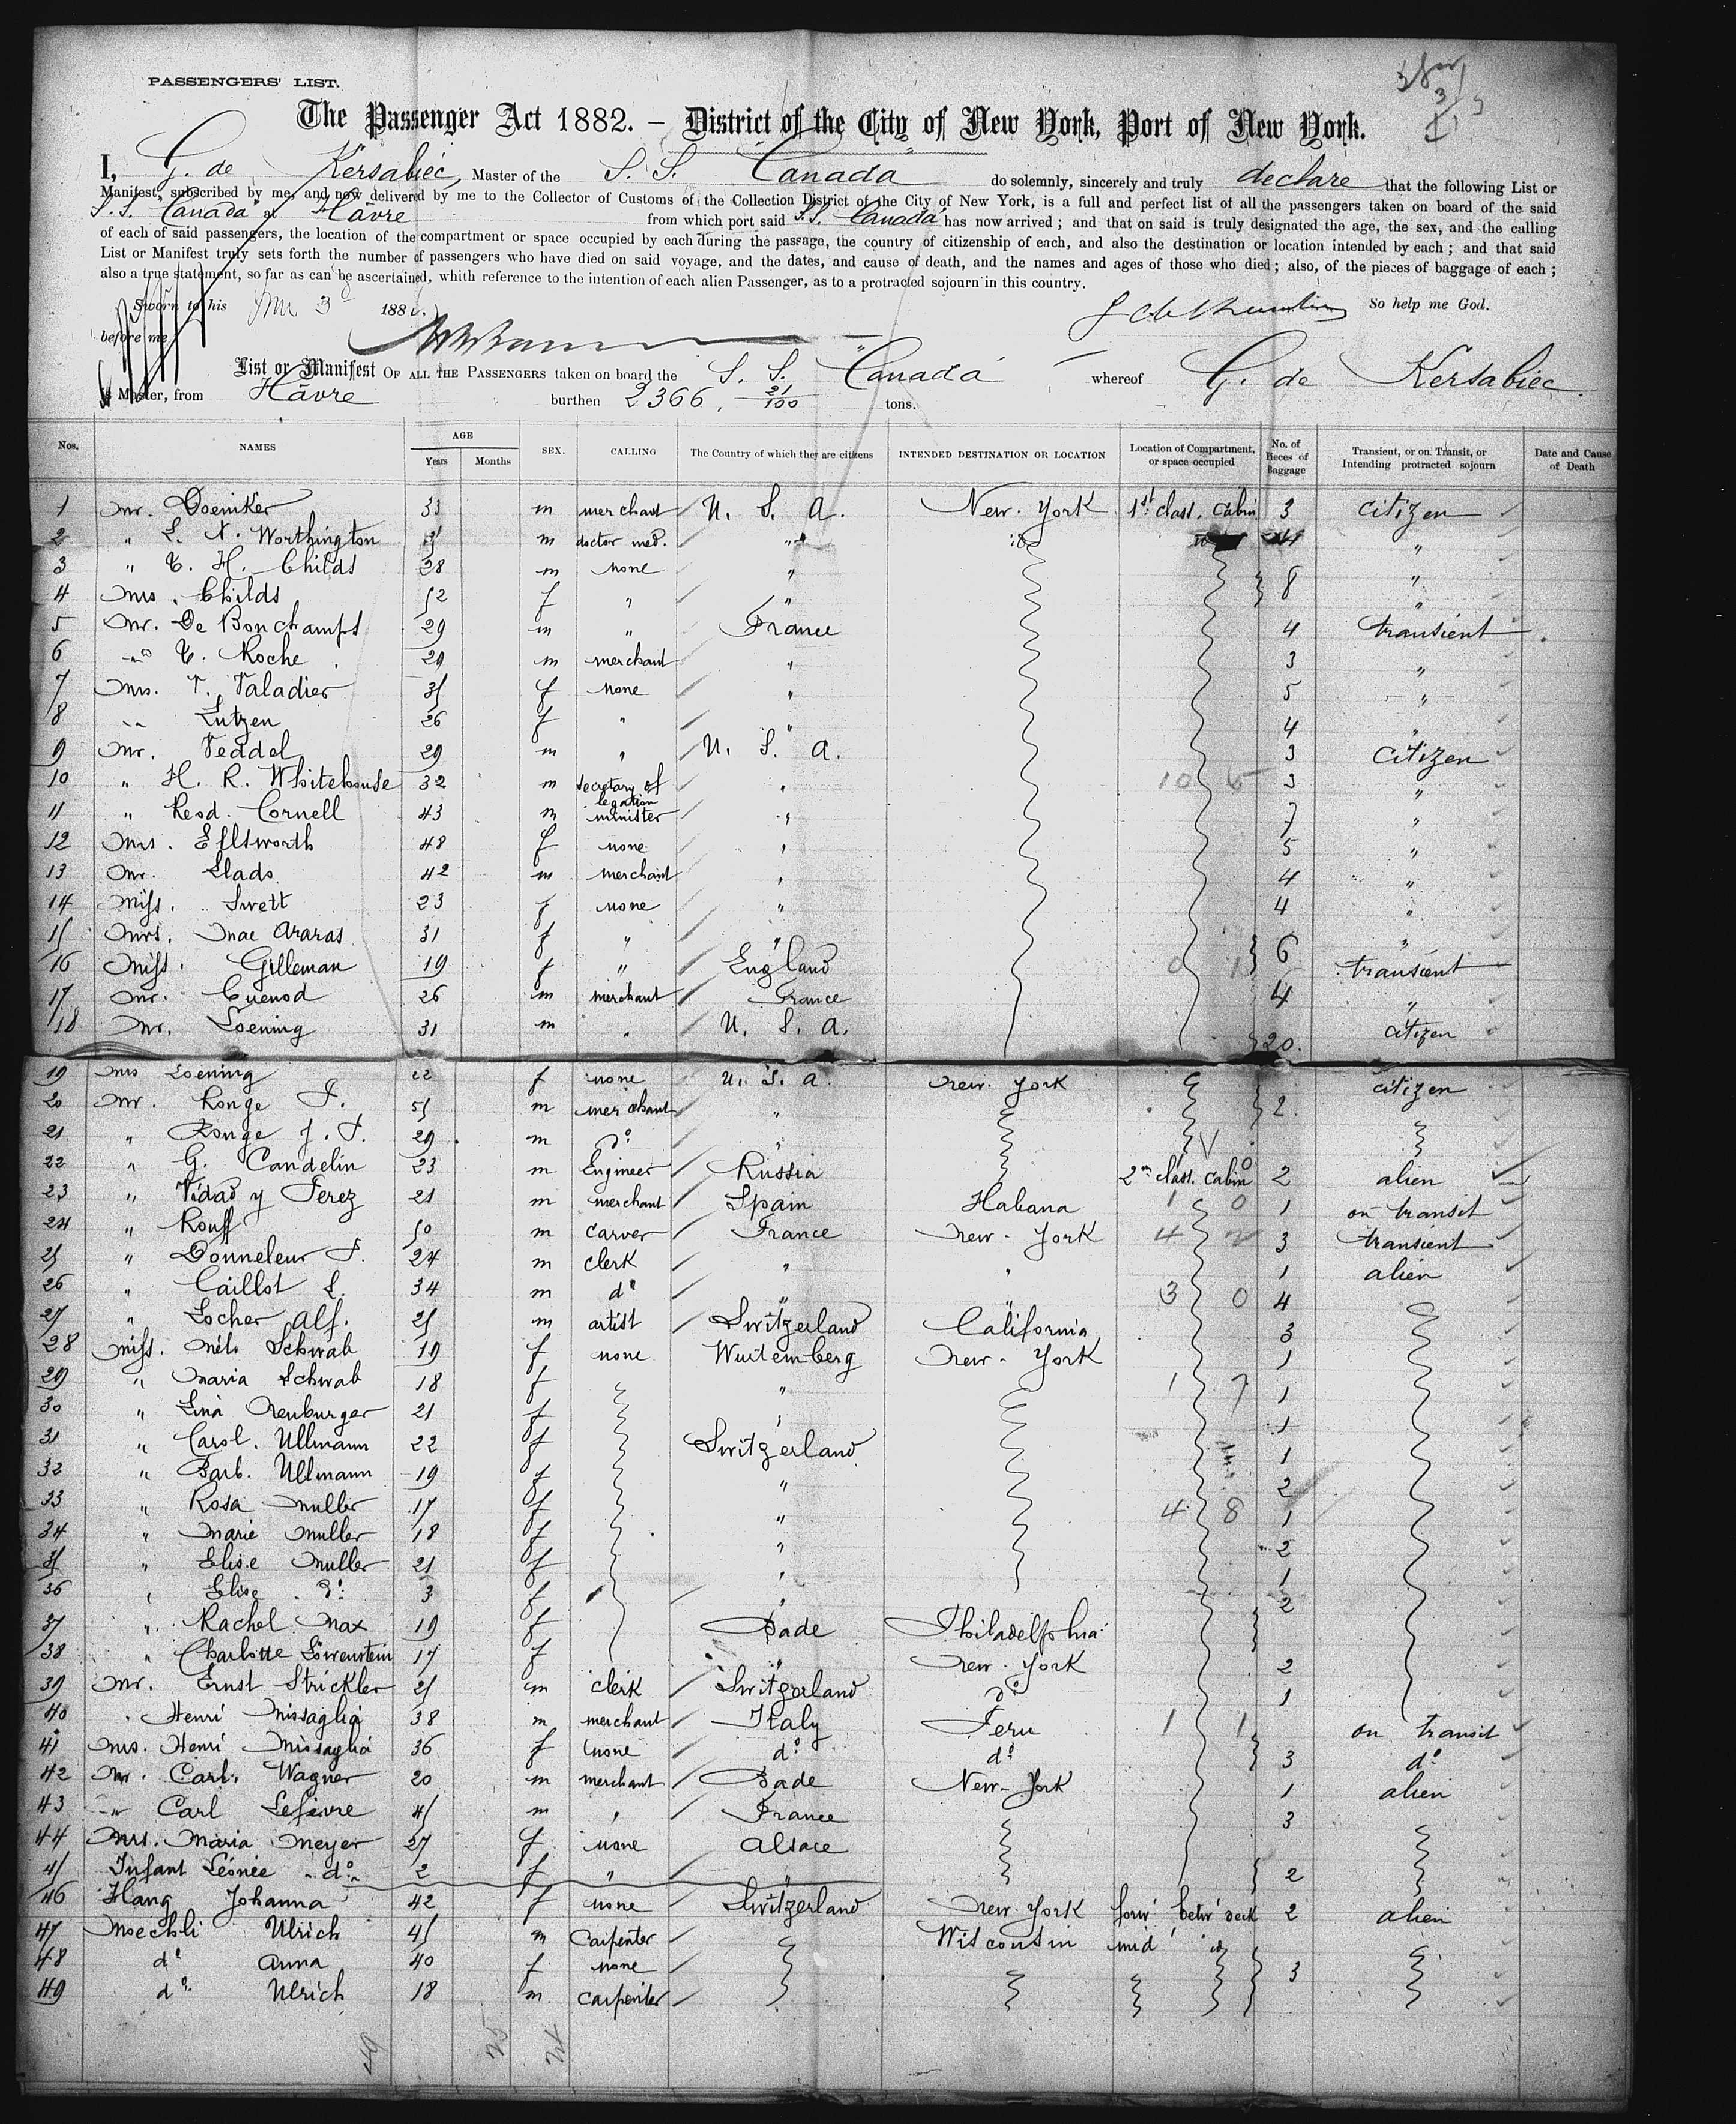 PASSENGERS' LIST.
The Passenger Act 1882. – District of the City of New York, Port of New York.
I, G. de Kersabiec, Master of the S. S. Canada do solemnly, sincerely and truly declare that the following List or
Manifest, subscribed by me, and now delivered by me to the Collector of Customs of the Collection District of the City of New York, is a full and perfect list of all the passengers taken on board of the said
S. S. Canada at Hâvre from which port said S. S. Canada has now arrived; and that on said is truly designated the age, the sex, and the calling
of each of said passengers, the location of the compartment or space occupied by each during the passage, the country of citizenship of each, and also the destination or location intended by each; and that said
List or Manifest truly sets forth the number of passengers who have died on said voyage, and the dates, and cause of death, and the names and ages of those who died; also, of the pieces of baggage of each;
also a true statement, so far as can be ascertained, whith reference to the intention of each alien Passenger, as to a protracted sojourn in this country.
Sworn to his 3d 188 So help me God.
before me
List or Manifest OF ALL THE PASSENGERS taken on board the S. S. Canada whereof G. de Kersabiec
is Master, from Hâvre burthen 2366, 21/100 tons.
Nos. NAMES AGE Years Months SEX. CALLING The Country of which they are citizens INTENDED DESTINATION OR LOCATION Location of Compartment, or space occupied No. of Pieces of Baggage Transient, or on Transit, or Intending protracted sojourn Date and Cause of Death
1 Mr. Doeniker 33 m merchant U. S. A. New. York 1st class. Cabin 3 citizen
2 " L. N. Worthington m doctor med. " "
3 " C. H. Childs 28 m none " 8 "
4 Mrs. Childs 52 f " " "
5 Mr. De Bonchamps 29 m " France 4 transient
6 C. Roche 29 m merchant " 3 "
7 Mrs. T. Taladier 35 f none " 5 "
8 " Lutzen 26 f " " 4 "
9 Mr. Teddel 29 m " U. S. A. 3 citizen
10 " H. R. Whitehouse 32 m secretary of legation " 3 "
11 " Revd. Cornell 43 m minister " 7 "
12 Mrs. Ellsworth 48 f none " 5 "
13 Mr. Llado 42 m merchant " 4 "
14 Miss. Swett 23 f none " 4 "
15 Mrs. Mac Araras 31 f " " 6 "
16 Miss. Gilleman 19 f " England transient
17 Mr. Cuenod 26 m merchant France 4 "
18 Mr. Loening 31 m " U. S. A. 20. citizen
19 Mrs Loening 22 f none U. S. A. New. York citizen
20 Mr. Ronge P. 55 m merchant " 2.
21 " Ronge J. P. 29 m do "
22 " G. Candelin 23 m Engineer Russia 2nd class. Cabin 2 alien
23 " Vidad y Perez 21 m merchant Spain Habana 1 on transit
24 " Rouff 50 m carver France New. York 3 transient
25 " Donneleur P. 24 m clerk " " 1 alien
26 " Caillot L. 34 m do " " 4
27 " Locher Alf. 25 m artist Switzerland California 3
28 Miss. Schwab 19 f none Wurtemberg New. York 1
29 " Maria Schwab 18 f " 1
30 " Lina Neuburger 21 f " 1
31 " Carol. Ullmann 22 f Switzerland 1
32 " Barb. Ullmann 19 f " 2
33 " Rosa Muller 17 f " 1
34 " Marie Muller 18 f " 2
35 " Elise Muller 21 f " 1
36 " Elise do 3 f " 2
37 " Rachel Max 19 f Bade Philadelphia
38 " Charlotte Löwenstein 17 f " New. York 2
39 Mr. Ernst Strickler 25 m clerk Switzerland do 1
40 " Henri Missaglia 38 m merchant Italy Peru on transit
41 Mrs. Henri Missaglia 36 f none do do 3 do
42 Mr. Carl. Wagner 20 m merchant Bade New-York 1 alien
43 " Carl Lefèvre 45 m " France 3
44 Mrs. Maria Meyer 27 f none Alsace
45 Infant Léonie do 2 f " " 2
46 Hang Johanna 42 f none Switzerland New York forw' betw' deck 2 alien
47 Moechli Ulrich 45 m carpenter Wisconsin mid
48 do Anna 40 f none 3
49 do Ulrich 18 m carpenter
49 25 24